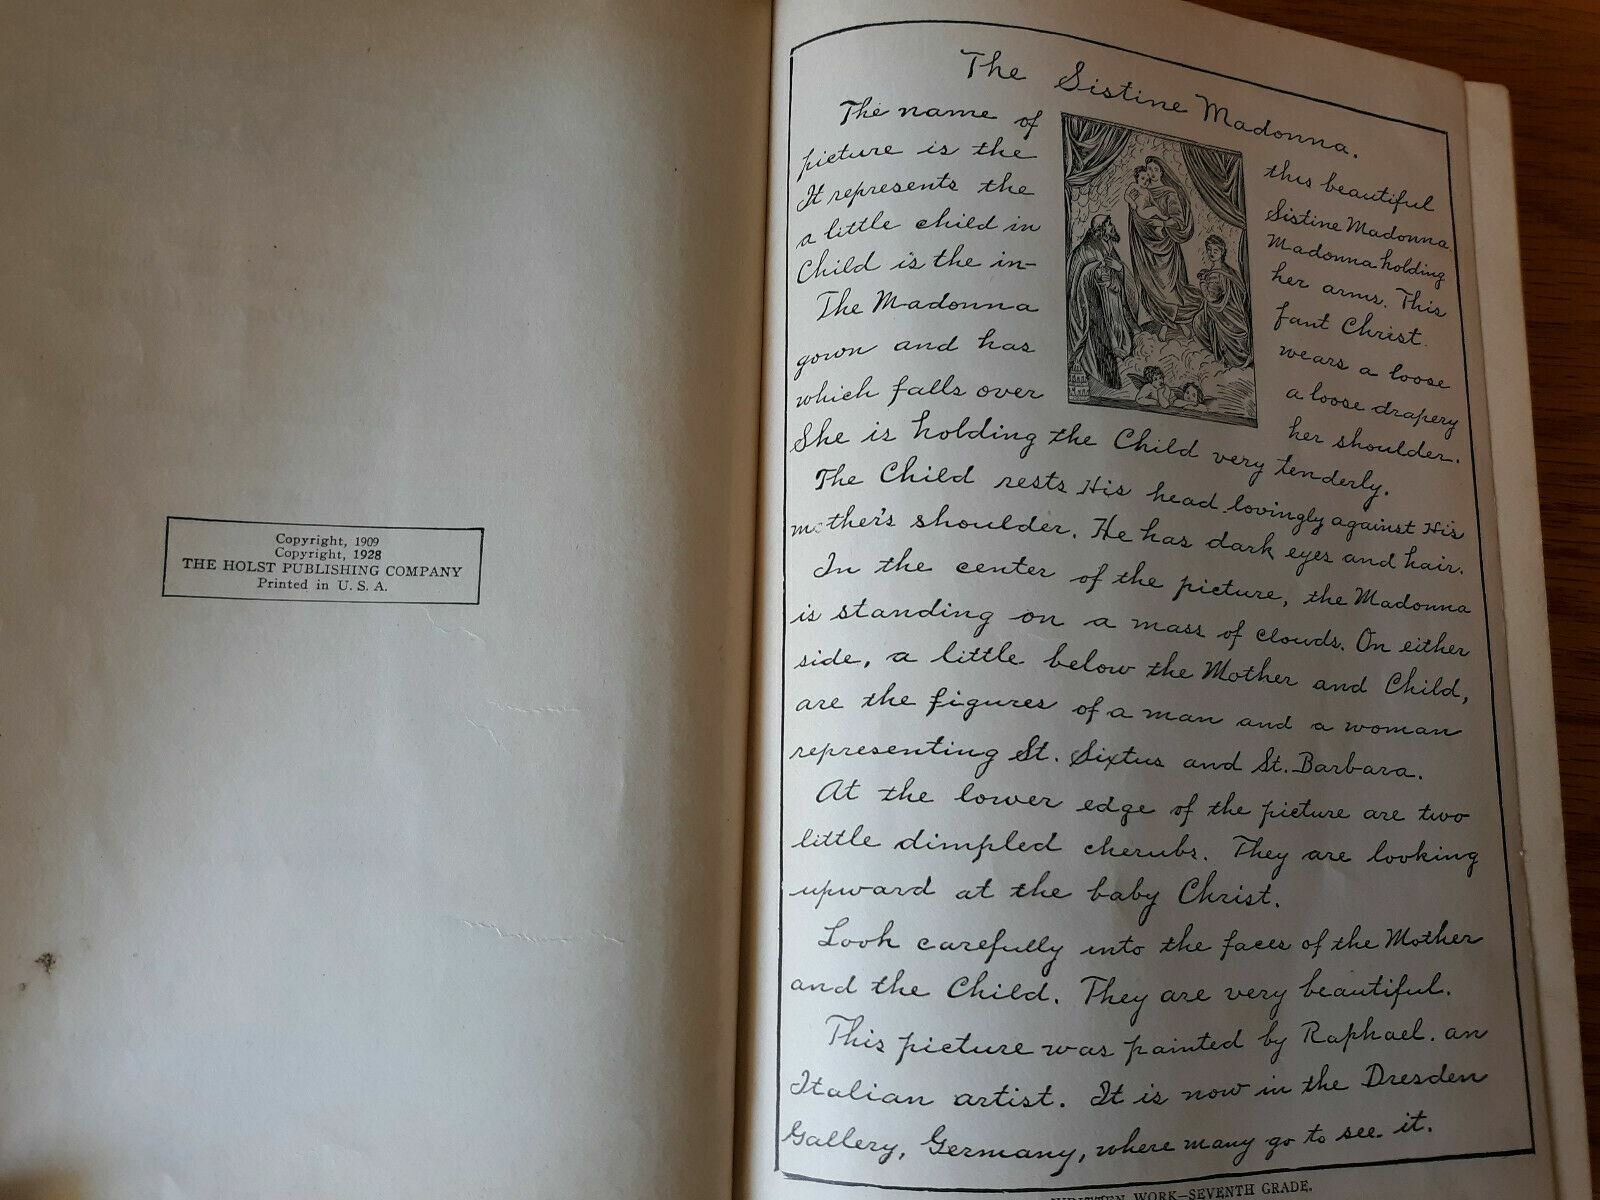 Copyright, 1909
Copyright, 1928
THE HOLST PUBLISHING COMPANY
Printed in U. S. A.
The Sistine Madonna.
The name of this beautiful
picture is the Sistine Madonna.
It represents the Madonna holding
a little child in her arms. This
Child is the in-fant Christ.
The Madonna wears a loose
gown and has a loose drapery
which falls over her shoulder.
She is holding the Child very tenderly.
The Child rests His head lovingly against His
mother's shoulder. He has dark eyes and hair.
In the center of the picture, the Madonna
is standing on a mass of clouds. On either
side, a little below the Mother and Child,
are the figures of a man and a woman
representing St. Sixtus and St. Barbara.
At the lower edge of the picture are two
little dimpled cherubs. They are looking
upward at the baby Christ.
Look carefully into the faces of the Mother
and the Child. They are very beautiful.
This picture was painted by Raphael. an
Italian artist. It is now in the Dresden
Gallery, Germany, where many go to see it.
WRITTEN WORK—SEVENTH GRADE.